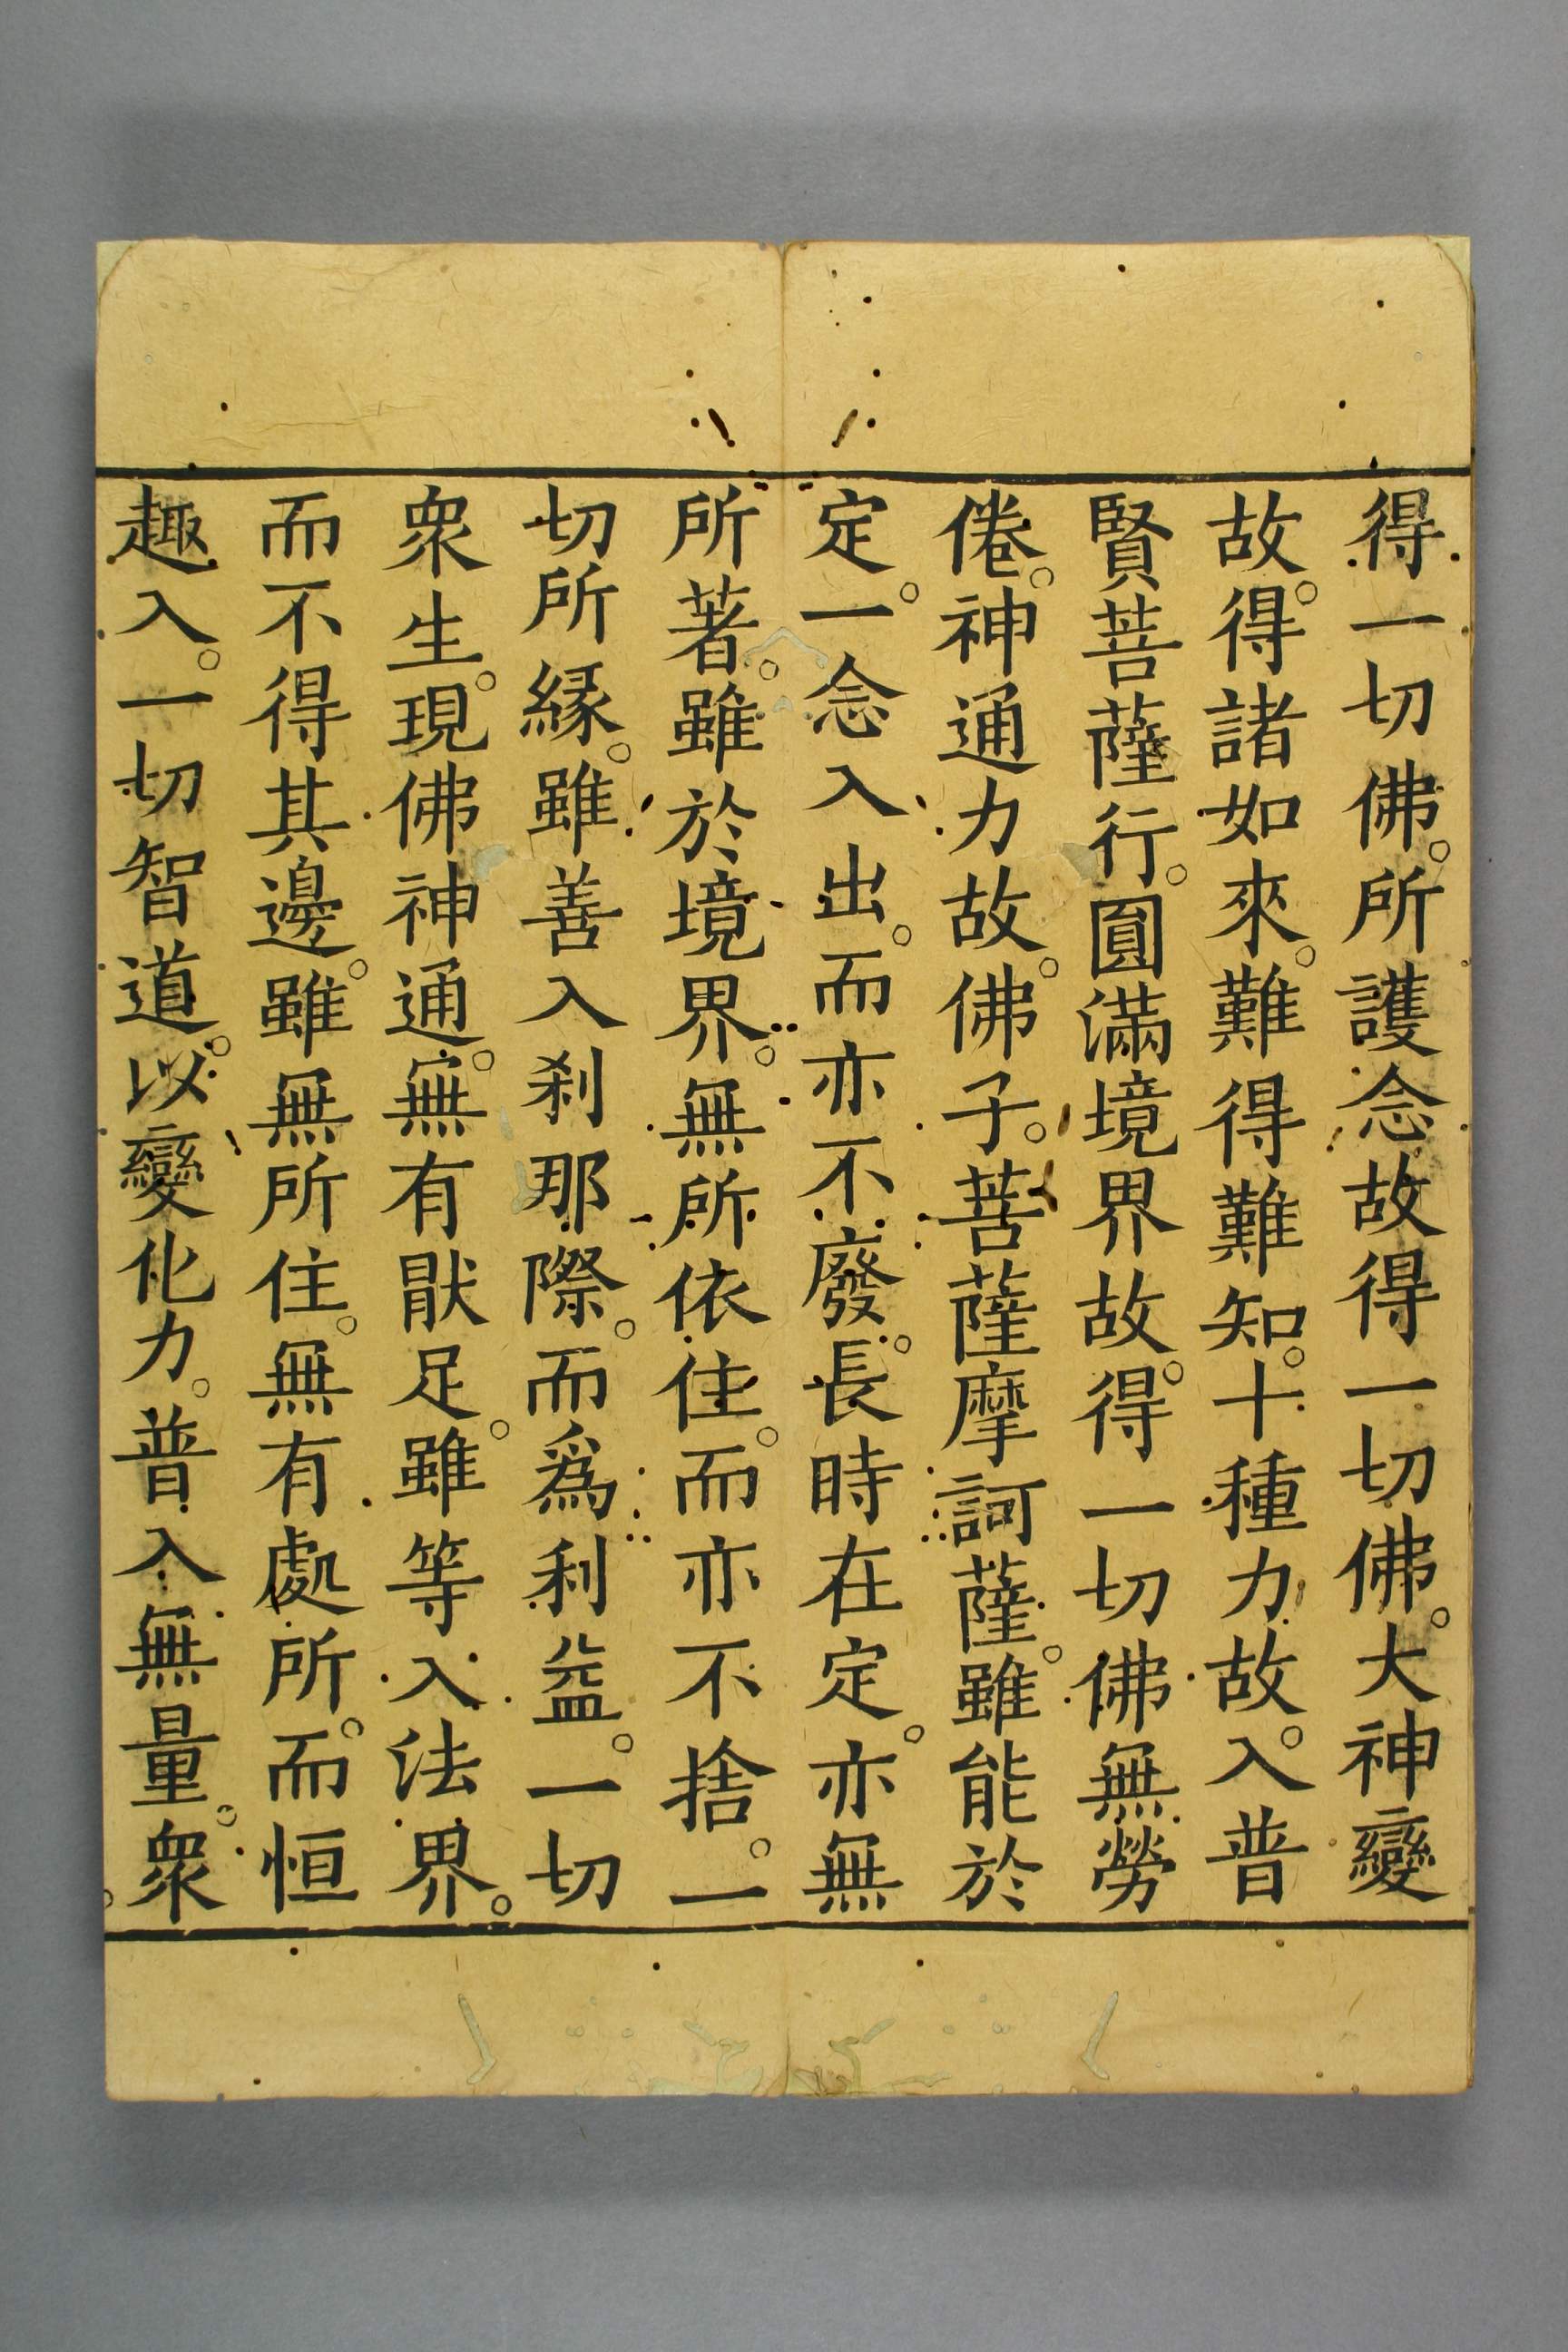 得一切佛。所護念故得一切佛。大神變
故。得諸如來。難得難知。十種力故。入普
賢菩薩行。圓滿境界故。得一切佛無勞
倦。神通力故。佛子。菩薩摩訶薩。雖能於
定。一念入出。而亦不廢。長時在定。亦無
所著。雖於境界。無所依住。而亦不捨。一
切所縁。雖善入刹那際。而爲利益。一切
衆生。現佛神通。無有猒足。雖等入法界。
而不得其邊。雖無所住。無有處所。而恒
趣入。一切智道。以變化力。普入無量。衆